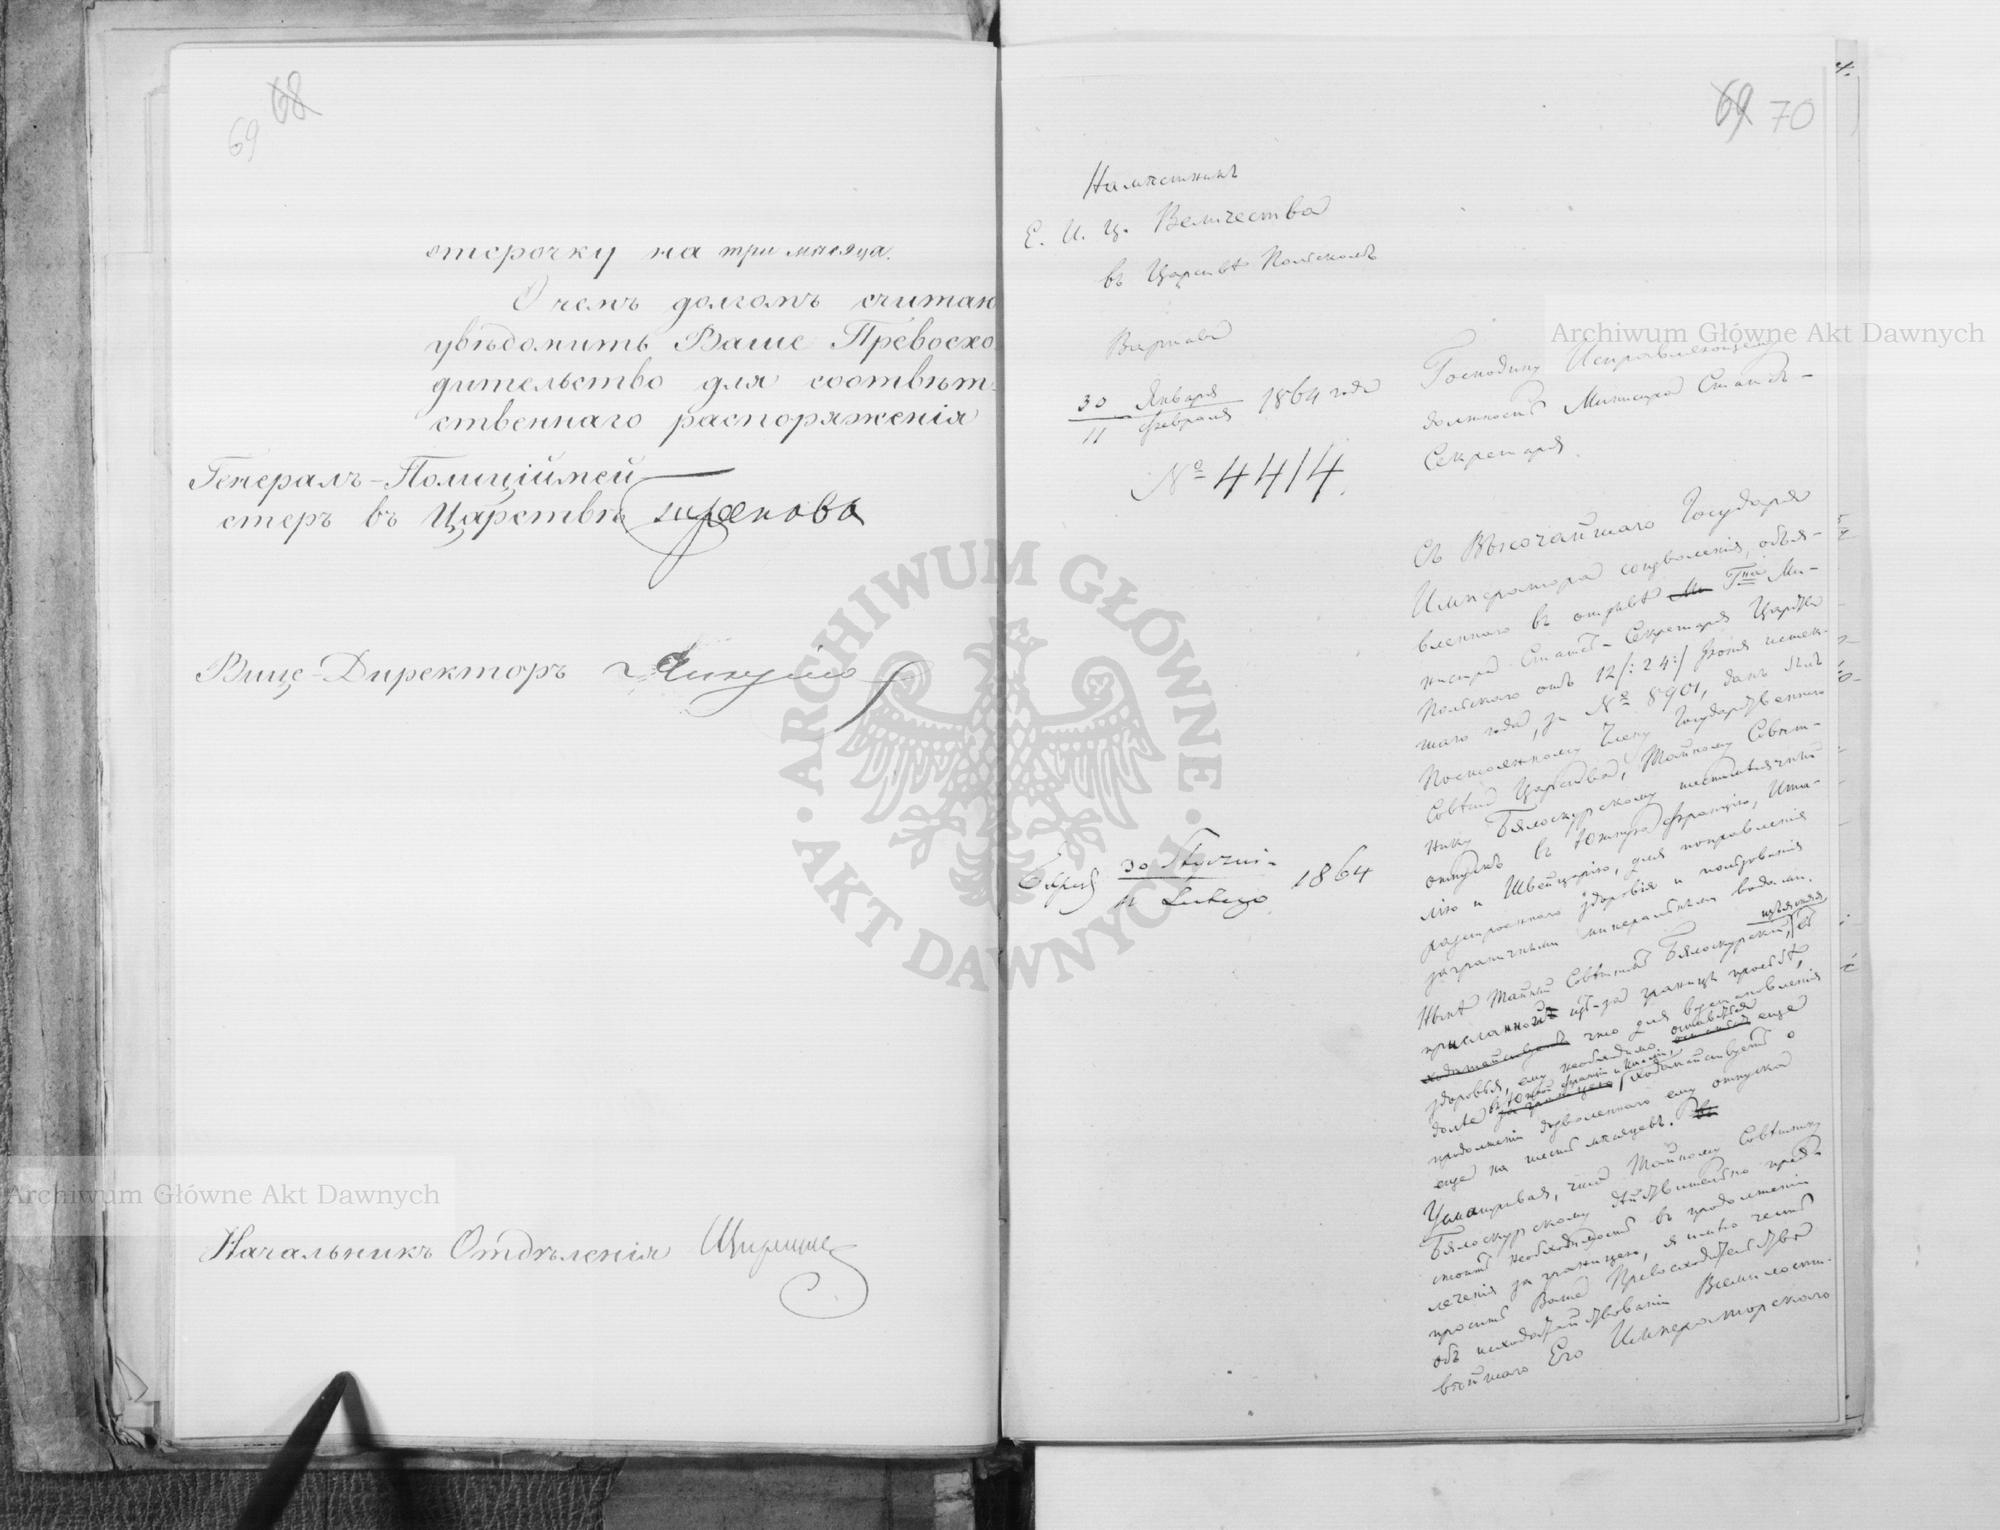 69 68
отсрочку на три мѣсяца.
О чемъ долгомъ считаю
увѣдомить Ваше Превосхо-
дительство для соотвѣт-
ственнаго распоряженія
Генералъ-Полиціймей-
стеръ въ Царствѣ
Вице-Директоръ
Начальникъ Отдѣленія
69 70
Намѣстникъ
Е. И. Ц. Величества
въ Царствѣ Польскомъ
Варшава
30 Января
11 Февраля 1864 года
№ 4414.
30 Stycznia
11 Lutego 1864
Господину Исправляющему
должность Министра Статсъ-
Секретаря.
Съ Высочайшаго Государя
Императора соизволенія, объя-
вленнаго въ отзывѣ Г-на Ми-
нистра Статсъ-Секретаря Царства
Польскаго отъ 12/:24:/ Іюня истек-
шаго года, за № 8901, данъ былъ
Постоянному Члену Государственнаго
Совѣта Царства, Тайному Совѣт-
нику Бялоскурскому шестимѣсячный
отпускъ въ Южную Францію, Ита-
лію и Швейцарію, для поправленія
разстроеннаго здоровья и пользованія
заграничными минеральными водами.
Нынѣ Тайный Совѣтникъ Бялоскурскій, изъясняя въ
присланной изъ-за границы просьбѣ,
ходатайствуетъ что для возстановленія
здоровья, ему необходимо оставаться еще
долѣе въ Южной Франціи и Италіи, за границею ходатайствуетъ о
продолженіи дозволеннаго ему отпуска
еще на шесть мѣсяцевъ.
Усматривая, что Тайному Совѣтнику
Бялоскурскому дѣйствительно пред-
стоитъ необходимость въ продолженіи
леченія за границею, я имѣю честь
просить Ваше Превосходительство
объ исходатайствованіи Всемилости-
вѣйшаго Его Императорскаго
Archiwum Główne Akt Dawnych
Archiwum Główne Akt Dawnych
ARCHIWUM GŁÓWNE · AKT DAWNYCH ·